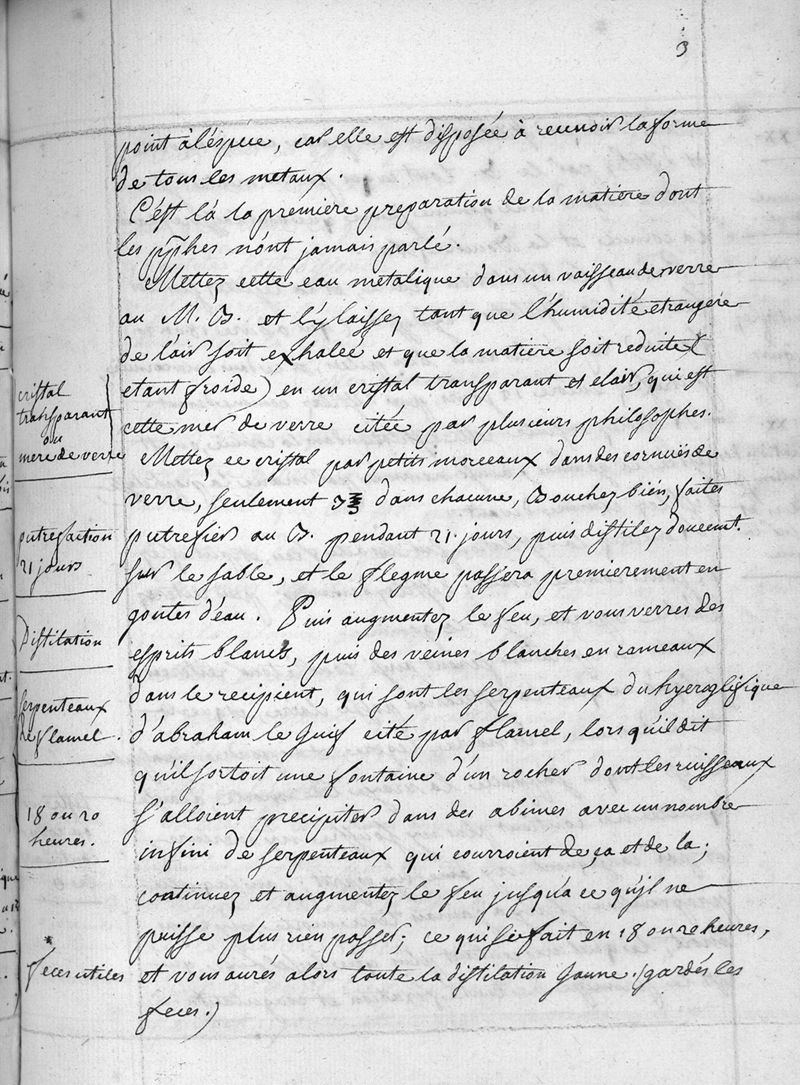 3
point à l'éspece, car elle est disposée à recevoir la forme
de tous les metaux.
C'est là la premiere preparation de la matiere dont
les pphes n'ont jamais parlé.
Mettez cette eau metalique dans un vaisseau de verre
au M. B. et l'y laissez tant que l'humidité etrangere
de l'air soit exhaleé et que la matiere soit reduite (
etant froide) en un cristal transparant et clair, qui est
cette mer de verre citée par plusieurs philosophes.
cristal
transparant
ou
mere de verre
Mettez ce cristal par petits morceaux dans des cornues de
verre, seulement 3 dans chacune, Bouchez bien, faites
putrefier au B. pendant 21. jours, puis distilez doucemt.
putrefaction
21 jours
sur le sable, et le flegme passera premierement en
goutes d'eau. Puis augmentez le feu, et vous verres des
Distilation
esprits blancs, puis des veines blanches en rameaux
dans le recipient, qui sont les serpenteaux du hyeroglifique
serpenteaux
de flamel.
d'abraham le Juif cité par flamel, lors qu'il dit
qu'il sortoit une fontaine d'un rocher dont les ruisseaux
s'alloient precipiter dans des abimes avec un nombre
18 ou 20
heures.
infini de serpenteaux qui courroient de ça et de la;
continuez et augmentez le feu jusqu'a ce qu'jl ne
puisse plus rien passer; ce qui se fait en 18 ou 20 heures,
feces utiles
et vous aurés alors toute la distilation Jaune. (gardés les
feces.)